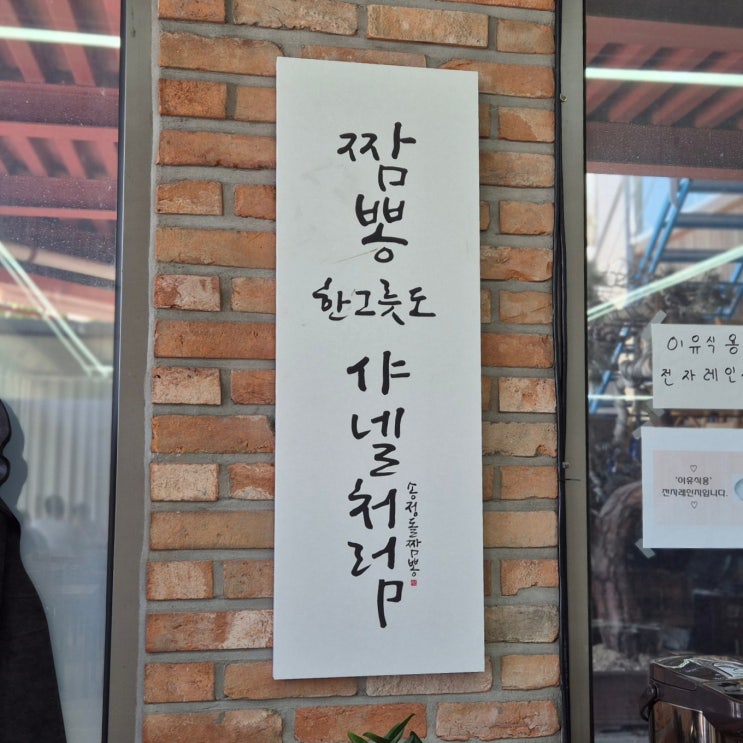 짬
뽕
한그릇도
샤
넬
처
럼
송정돌짬뽕
이유식용
전자레인
♡
'이유식용'
전자레인지입니다.
♡